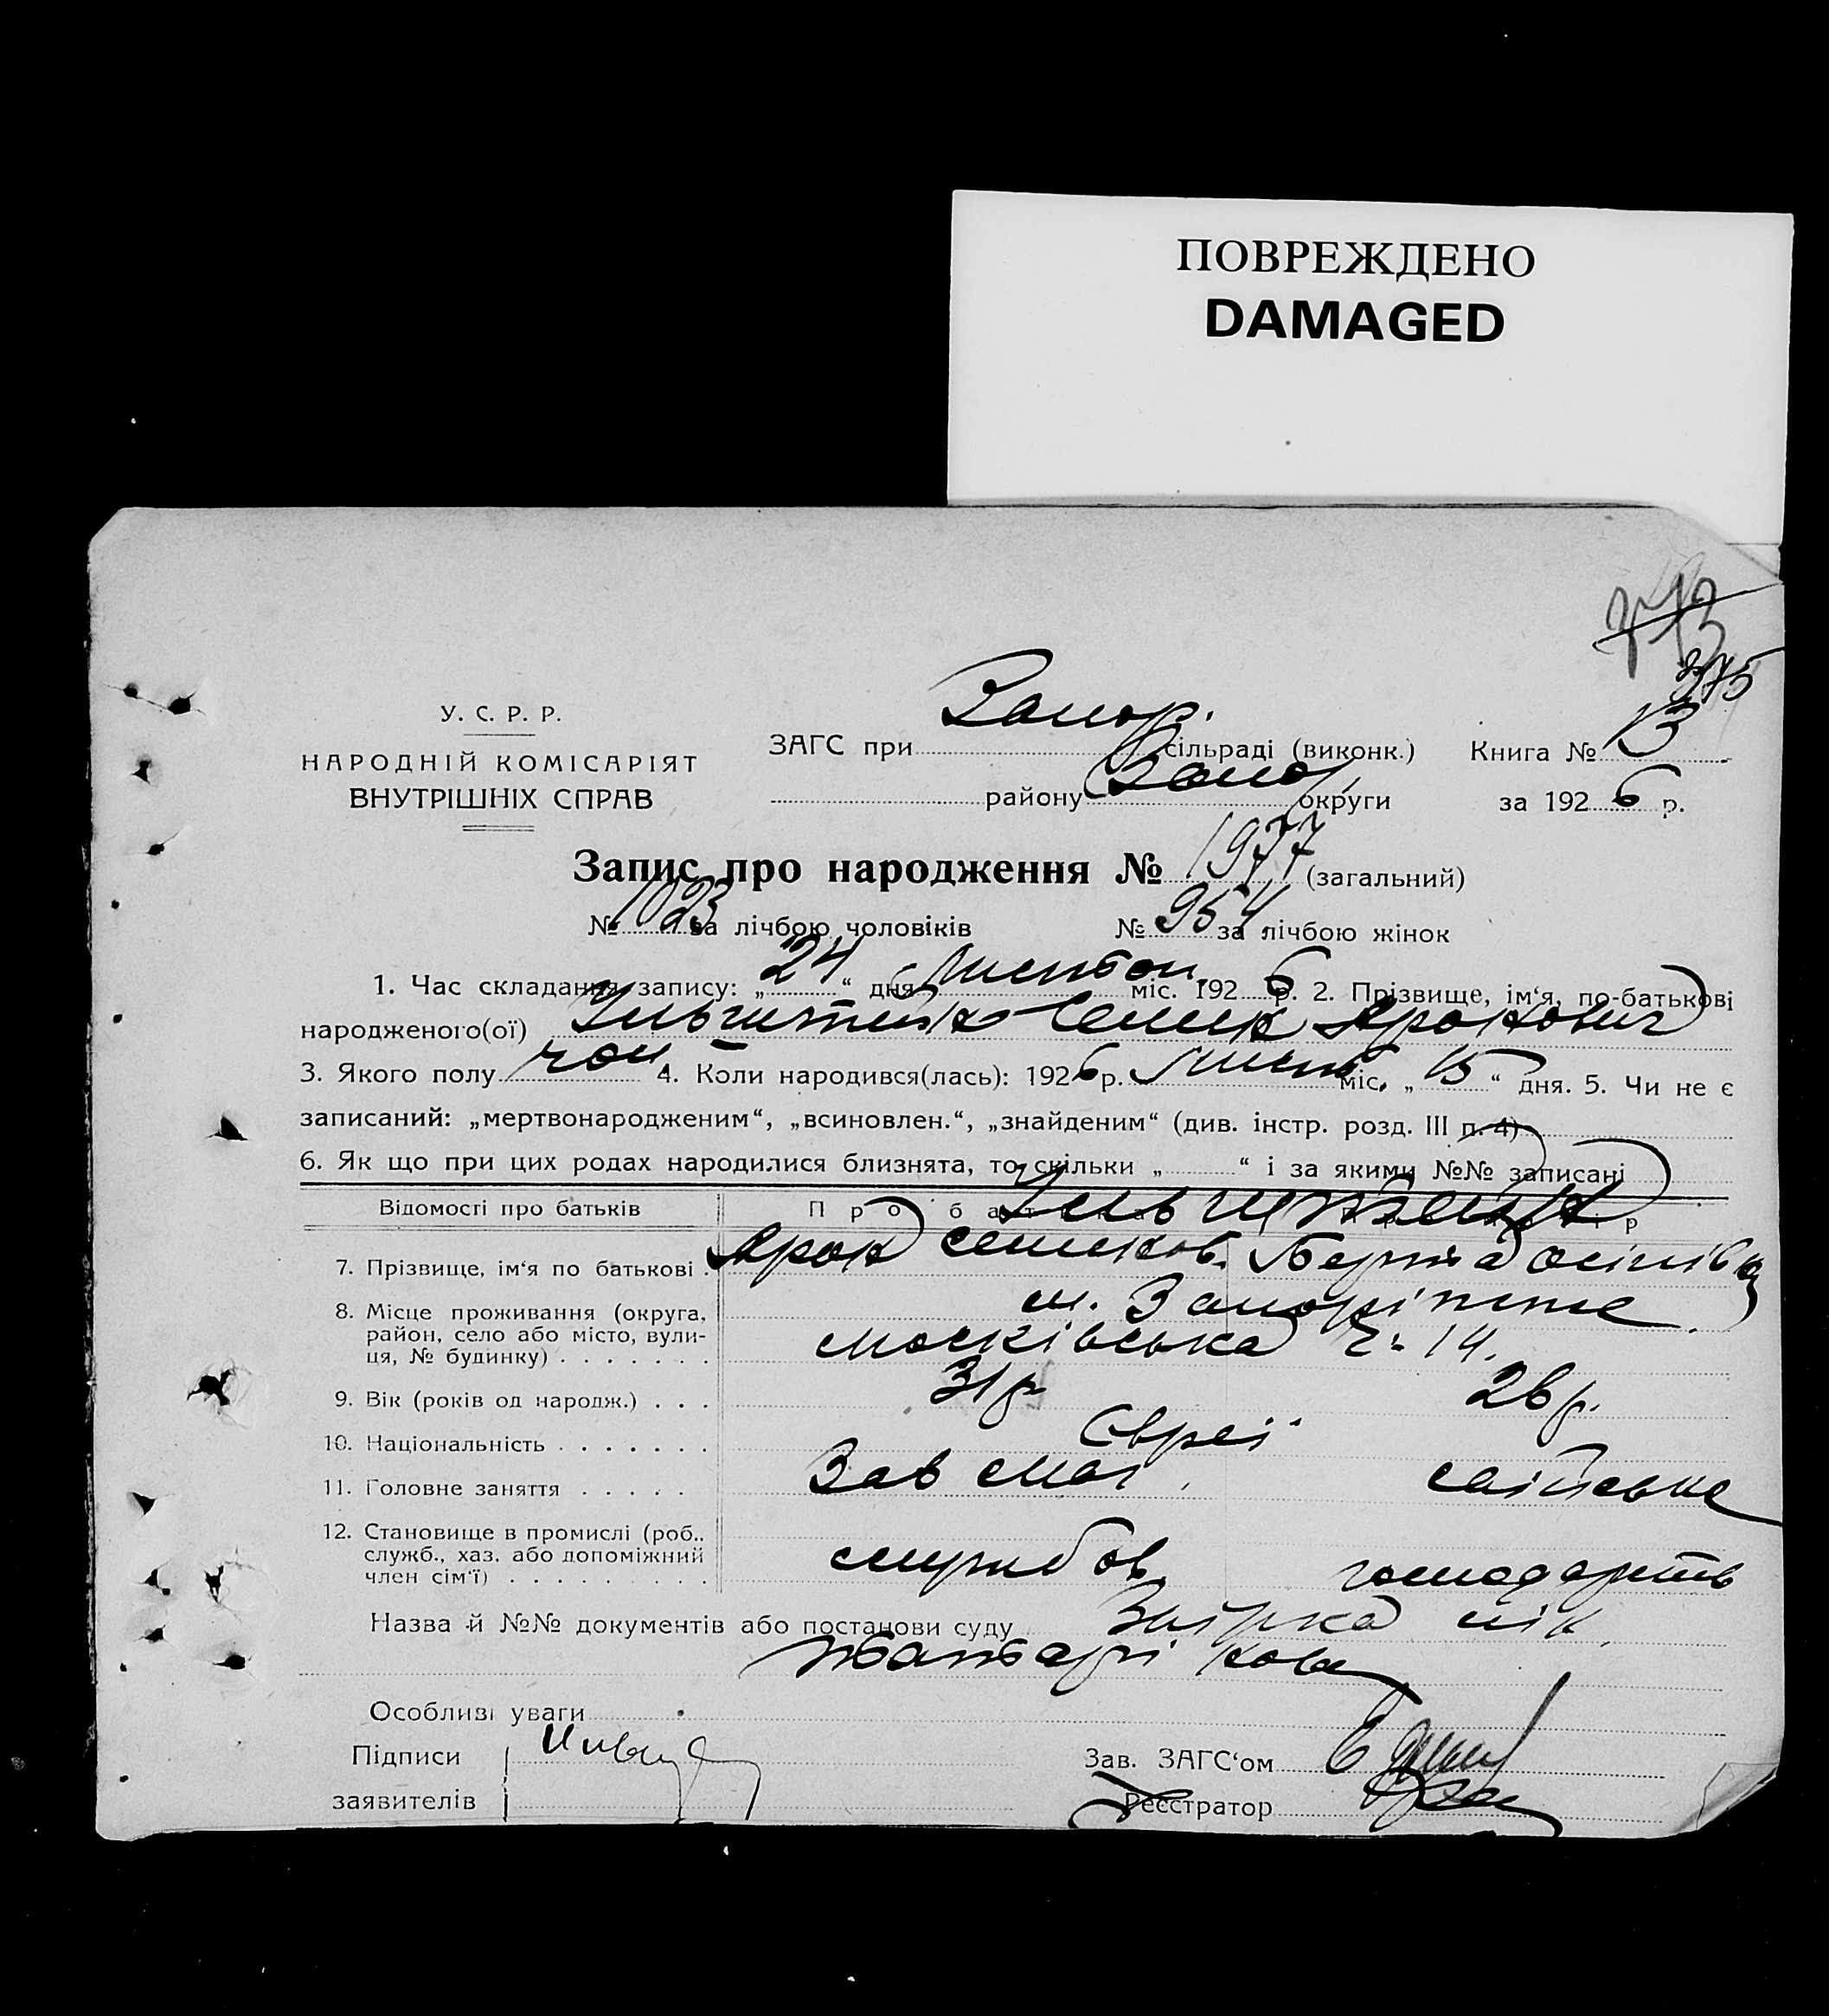 ПОВРЕЖДЕНО
DAMAGED
375
У. С. Р. Р.
НАРОДНІЙ КОМІСАРІЯТ
ВНУТРІШНІХ СПРАВ
ЗАГС при Запор. сільраді (виконк.) Книга № 13
району Запор округи за 1926 р.
Запис про народження № 1977 (загальний)
№ 1023 за лічбою чоловіків № 954 за лічбою жінок
1. Час складання запису: „24“ дня Листоп. міс. 1926 р. 2. Прізвище, ім‘я, по-батькові
народженого(ої) Аронович
3. Якого полу чол. 4. Коли народився(лась): 1926 р. Лист. міс. „15“ дня. 5. Чи не є
записаний: „мертвонародженим“, „всиновлен.“, „знайденим“ (див. інстр. розд. III п. 4)
6. Як що при цих родах народилися близнята, то скільки „ “ і за якими №№ записані
Відомості про батьків
7. Прізвище, ім‘я по батькові Арон Берта Осіпівна
8. Місце проживання (округа, м. Запоріжжє
район, село або місто, вули-
ця, № будинку) Московська ч. 14.
9. Вік (років од народж.) 31 р 26 р.
10. Національність Євреї
11. Головне заняття Зав маг.
12. Становище в промислі (роб.,
служб., хаз. або допоміжний службов. господарств
член сім‘ї)
Назва й №№ документів або постанови суду лік.
Особливі уваги
Підписи Зав. ЗАГС‘ом
заявителів Реєстратор